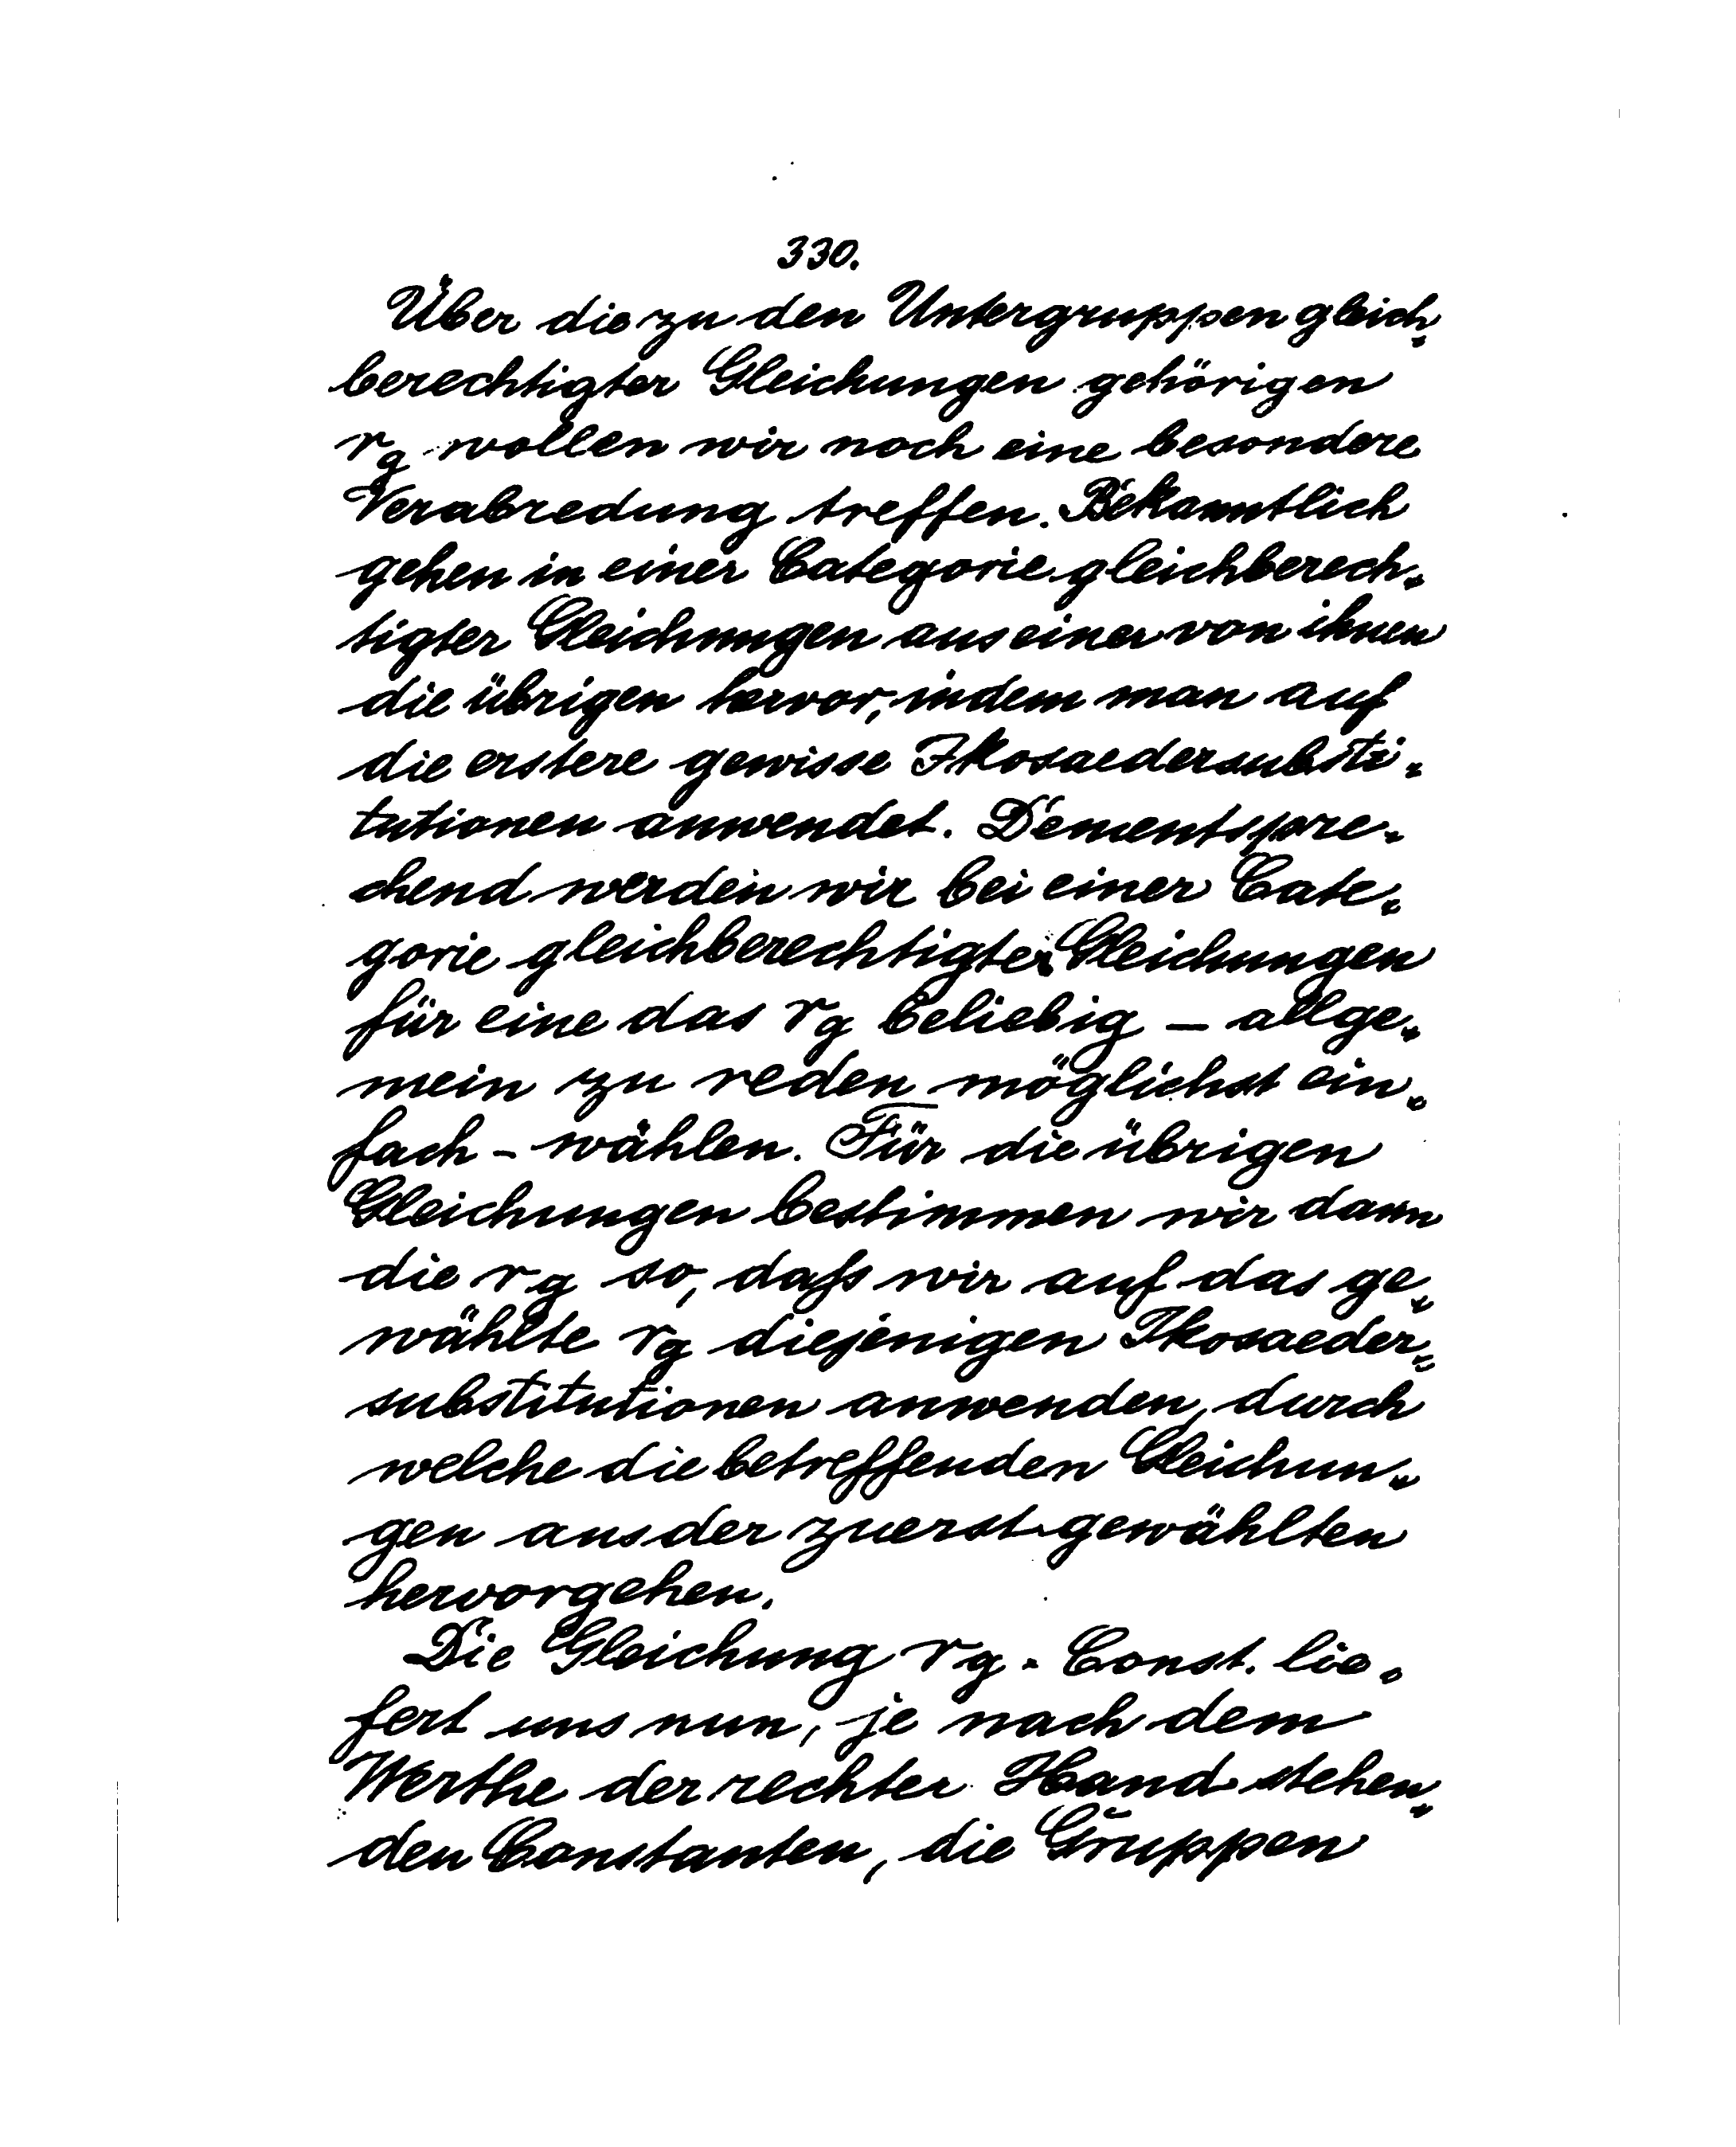 330.
Über die zu den Untergruppen gleich-
berechtigter Gleichungen gehörigen
r_g wollen wir noch eine besondere
Verabredung treffen. Bekanntlich
gehen in einer Categorie gleichberech-
tigter Gleichungen aus einer von ihnen
die übrigen hervor, indem man auf
die erstere gewisse Ikosaedersubsti-
tutionen anwendet. Dementspre-
chend werden wir bei einer Cate-
gorie gleichberechtigter Gleichungen
für eine das r_g beliebig – allge-
mein zu reden möglichst ein-
fach – wählen. Für die übrigen
Gleichungen bestimmen wir dann
die r_g so, daſs wir auf das ge-
wählte r_g diejenigen Ikosaeder-
substitutionen anwenden, durch
welche die betreffenden Gleichun-
gen aus der zuerst gewählten
hervorgehen.
Die Gleichung r_g = Const. lie-
fert uns nun, je nach dem
Werthe der rechter Hand stehen-
den Constanten, die Gruppen